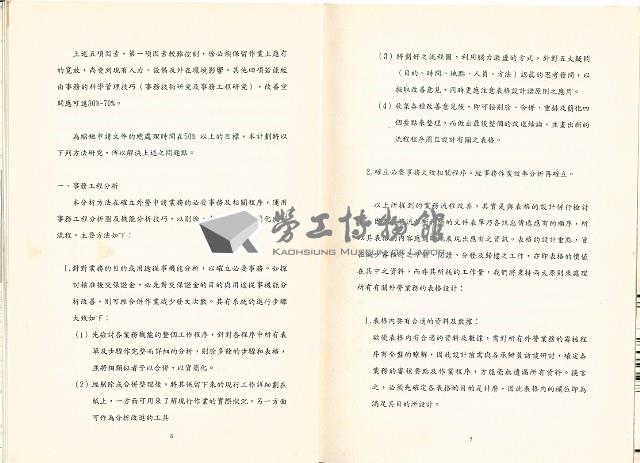 上述五項因素,第一項因素較難控制,除必須保留作業上應有
的寬放,尚受到現有人力、設備及外在環境影響。其他四項當能經
由事務的科學管理技巧(事務技術研究及事務工程研究),改善空
間應可達30%-70%。
為縮短申請文件的總處理時間在50%以上的目標,本計劃將以
下列方法研究,俾以解決上述之問題點。
一、事務工程分析
本分析方法在確立外勞申請業務的必要事務及相關程序,運用
事務工程分析圖及機能分析技巧,以剔除、
流程。主要方法如下:
1.針對業務的目的或用途從事機能分析,以確立必要事務。如採
別核准後交保證金,必先對交保證金的目的與用途從事機能分
析改善,則可經合併作業減少發文次數。其有系統的進行步驟
大致如下:
(1)先檢討各業務機能的整個工作程序,針對各程序中所有表
單及步驟作完整而詳細的分析,剔除多餘的步驟和表格,
並將相類似者予以合併,以資簡化。
(2)經剔除或合併整理後,將其保留下來的現行工作詳細劃在
紙上,一方面可用及了解現行作業的實際狀況。另一方面
可作為分析改進的工具
6
(3)將劃好之流程圖,利用腦力激盪的方式,針對五大疑問
(目的、時間、地點、人員、方法)認真的思考發問,以
採取改善意見,同時更應注意表格設計諸原則之應用。
(4)收集各種改善意見後,即可按剔除、合併、重排及簡化四
個要點來整理,而做出最後整個的改進結論,並畫出新的
流程程序圖且設計有關之表格。
2.確立必要事務文攷相關程序,經事務作業效率分析再確立。
以上所提到的業務流程改善,其實是與表格的設計併行檢討
的文件表單乃各訊息傳遞應有的順序,所
以其表格內容應
現出應有之資訊。表格的設計重點,當
閱讀、分發及歸檔之工作,亦即表格的價值
在其中之資料,而非其所耗的工作量,我們將秉持兩大原則來處理
所有有關外勞業務的表格設計:
1.表格內要有合適的資料及數據:
欲使表格內有合適的資料及數據,需對所有外勞業務的審核程
序有全盤的瞭解,因此設計前需與各承辦員訪談研討,確定各
業務的審核要點及作業程序,方能毫無遺漏所有資料。換言
之,必須先確定各表格的目的是什麼,因此表格內的欄位即為
滿足其目的所設計。
7
勞工博物館
KAOHSIUNG MUSEUM OF LABOR